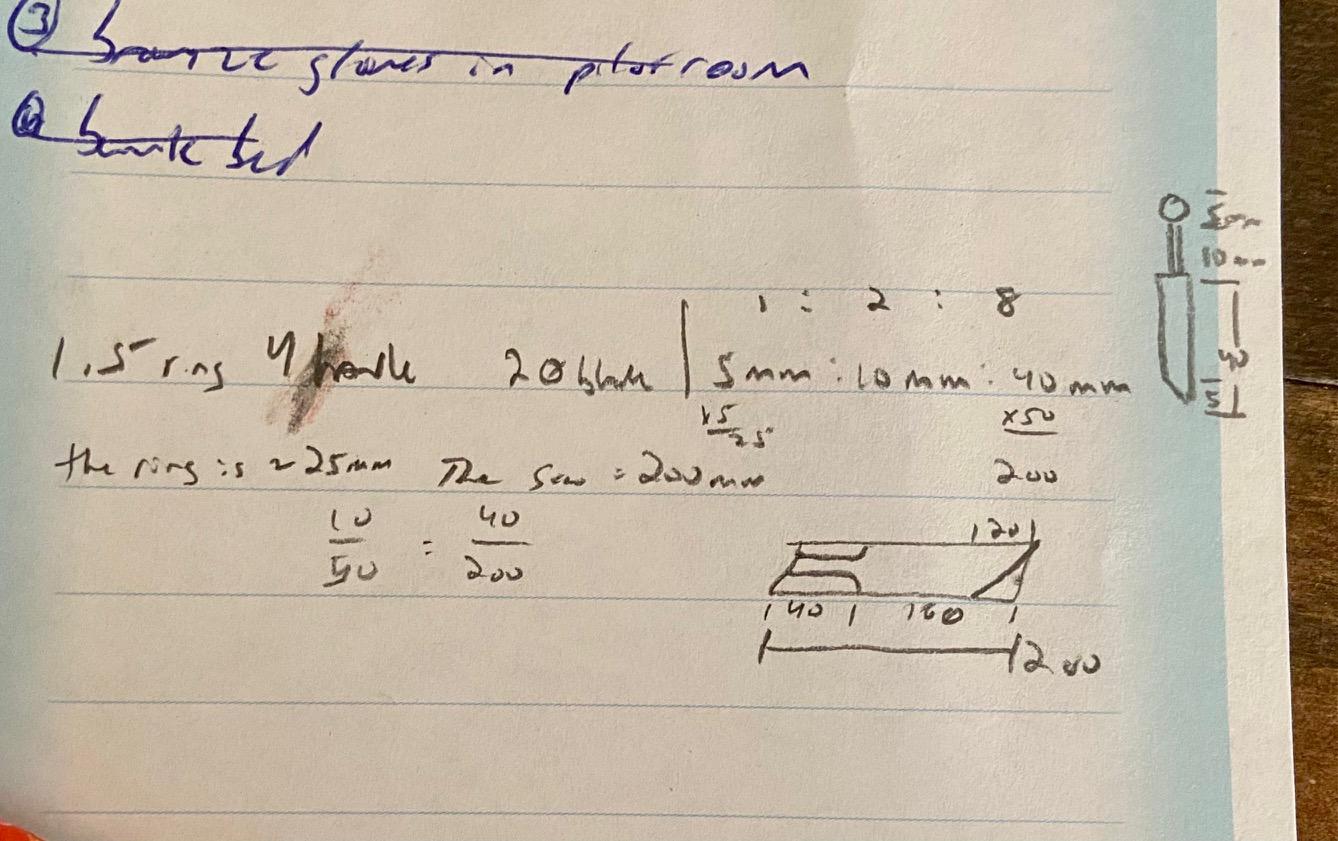 ③ bronze gloves in pilot room
④ bunk bed
5mm
10mm
40
5
1 : 2 : 8
1.5 ring 4 handle 20 blade | 5mm : 10mm : 40mm
x5 x50
25 200
the ring is ~25mm The = 200mm
10 = 40
50 200
20
40 160
200